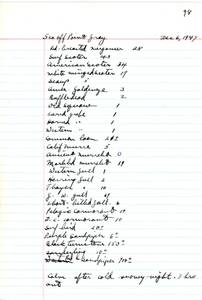 98
Sea off Point Grey Dec 6, 1947
Rd. breasted merganser 28
Surf scoter 43
American scoter 24
White winged scoter 19
Scaup "
Amer Goldeneye 3
Bufflehead 2
Old Squaw 1
Eared grebe 1
Horned " 1
Western " 1
Common loon
Calif Murre 5
Ancient murrelet
Marbled murrelet 19
Western Gull 1
Herring Gull 2
Thayer " 10
G. W. gull
Short-billed Gull 6
Pelagic Cormorant
D. C. cormorant 10
Surf bird 20
Purple Sandpiper 6
Black turnstone 150
Sanderling 10
Sandpiper
Calm after cold snowy night. 3 hrs
out